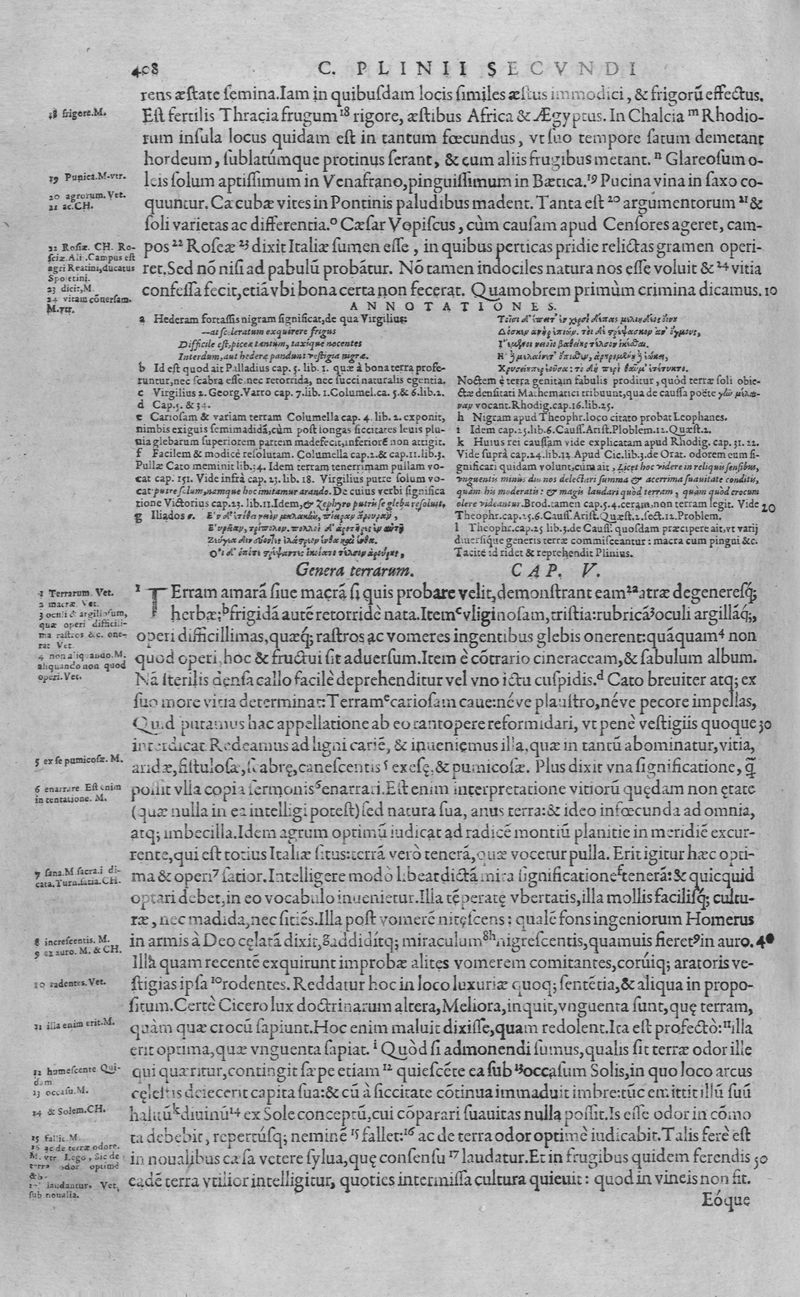 408
C. PLINII SECVNDI
rens æstate semina. Iam in quibusdam locis similes æstus immodici, & frigorū effectus.
Est fertilis Thracia frugum¹⁸ rigore, æstibus Africa & Ægyptus. In Chalcia ᵐ Rhodio-
rum insula locus quidam est in tantum fœcundus, vt suo tempore satum demetant
hordeum, sublatúmque protinus serant, & cum aliis frugibus metant. ⁿ Glareosum o-
leis solum aptissimum in Venafrano, pinguissimum in Bætica.¹⁹ Pucina vina in saxo co-
quuntur. Cæcubæ vites in Pontinis paludibus madent. Tanta est ²⁰ argumentorum ²¹ &
soli varietas ac differentia.° Cæsar Vopiscus, cùm causam apud Censores ageret, cam-
pos ²² Roseæ ²³ dixit Italiæ sumen esse, in quibus perticas pridie relictas gramen operi-
ret. Sed nō nisi ad pabulū probātur. Nō tamen indociles natura nos esse voluit & ²⁴ vitia
confessa fecit, etiā vbi bona certa non fecerat. Quamobrem primùm crimina dicamus. 10
18 frigere. M.
19 Punica. M. vtr.
20 agrorum. Vet.
21 ac. CH.
22 Rosiæ. CH. Ro-
sciæ. Alii. Campus est
agri Reatini, ducatus
Spoletini.
23 dicit. M.
24 vitam cōuersam.
M. vtr.
ANNOTATIONES.
a Hederam fortassis nigram significat, de qua Virgilius:
—at sceleratum exquirere frigus
Difficile est, piceæ tantùm, taxique nocentes
Interdum, aut hederæ pandunt vestigia nigræ.
b Id est quod ait Palladius cap. 5. lib. 1. quæ à bona terra profe-
runtur, nec scabra esse. nec retorrida, nec succi naturalis egentia.
c Virgilius 2. Georg. Varro cap. 7. lib. 1. Columel. ca. 5. & 6. lib. 2.
d Cap. 5. & 34.
e Cariosam & variam terram Columella cap. 4. lib. 2. exponit,
nimbis exiguis semimadidā, cùm post longas siccitates leuis plu-
uia glebarum superiorem partem madefecit, inferiorē non attigit.
f Facilem & modicè resolutam. Columella cap. 2. & cap. 11. lib. 3.
Pullæ Cato meminit lib. 34. Idem terram tenerrimam pullam vo-
cat cap. 151. Vide infrà cap. 25. lib. 18. Virgilius putre solum vo-
cat putre solum, namque hoc imitamur arando. De cuius verbi significa
tione Victorius cap. 23. lib. 11. Idem, & Zephyro putris se gleba resoluit,
g Iliados σ.
Noctem è terra genitam fabulis proditur, quòd terræ soli obie-
ctæ densitati Mathematici tribuunt, qua de caussa poëtæ
vocant. Rhodig. cap. 16. lib. 25.
h Nigram apud Theophr. loco citato probat Leophanes.
i Idem cap. 25. lib. 6. Causs. Arist. Ploblem. 12. Quæst. 2.
k Huius rei caussam vide explicatam apud Rhodig. cap. 31. 22.
Vide suprà cap. 24. lib. 13. Apud Cic. lib. 3. de Orat. odorem eum si-
gnificari quidam volunt, cùm ait, Licet hoc videre in reliquis sensibus,
vnguentis minùs diu nos delectari summa & acerrima suauitate conditis,
quàm his moderatis: & magis laudari quod terram, quàm quòd crocum
olere videatur. Brod. tamen cap. 5. 4. ceram, non terram legit. Vide 20
Theophr. cap. 25. 6. Causs. Arist. Quæst. 2. sect. 12. Problem.
l Theophr. cap. 25 lib. 3. de Causs. quosdam præcipere ait, vt varij
diuersique generis terræ commisceantur: macra cum pingui &c.
Tacitè id ridet & reprehendit Plinius.
Genera terrarum. CAP. V.
¹ TErram amarā siue macrā si quis probare velit, demonstrant eam ²ᵃ atræ degeneresq́;
herbæ: ᵇ frigidā autē retorridè nata. Item ᶜ vliginosam, tristia: rubricā ³ oculi argillāq́;,
operi difficillimas, quæq; rastros ac vomeres ingentibus glebis onerent: quāquam ⁴ non
quod operi, hoc & fructui sit aduersum. Item è cōtrario cineraceam, & sabulum album.
Nā sterilis densa callo facilè deprehenditur vel vno ictu cuspidis. ᵈ Cato breuiter atq; ex
suo more vitia determinat: Terram ᵉ cariosam caue: néve plaustro, néve pecore impellas,
Quid putamus hac appellatione ab eo tantopere reformidari, vt penè vestigiis quoque 30
interdicat. Redeamus ad ligni cariē, & inueniemus illa, quæ in tantū abominatur, vitia,
aridæ, fistulosæ, scabrę, canescentis ⁵ exesę, & pumicosæ. Plus dixit vna significatione, q̄
possit vlla copia sermonis ⁶ enarrari. Est enim interpretatione vitiorū quędam non ętate
(quæ nulla in ea intelligi potest) sed natura sua, anus terra: & ideo infœcunda ad omnia,
atq; imbecilla. Idem agrum optimū iudicat ad radicē montiū planitie in meridiē excur-
rente, qui est totius Italiæ situs: terrā verò tenerā, quæ vocetur pulla. Erit igitur hæc opti-
ma & operi ⁷ satior. Intelligere modò libeat dictā mira significatione ᶠ tenerā: & quicquid
optari debet, in eo vocabulo inuenietur. Illa tēperatę vbertatis, illa mollis facilisq́; cultu-
ræ, nec madida, nec sitiēs. Illa post vomerē nitęscens: qualē fons ingeniorum Homerus
in armis à Deo cęlatā dixit, ᵍ addidítq; miraculum ⁸ʰ nigrescentis, quamuis fieret ⁹ in auro. 40
Illā quam recentē exquirunt improbæ alites vomerem comitantes, corúiq; aratoris ve-
stigias ipsa ¹⁰ rodentes. Reddatur hoc in loco luxuriæ quoq; sentētia, & aliqua in propo-
situm. Certè Cicero lux doctrinarum altera, Meliora, inquit, vnguenta sunt, quę terram,
quàm quæ crocū sapiunt. Hoc enim maluit dixisse, quam redolent. Ita est profectò: ¹¹ illa
erit optima, quæ vnguenta sapiat. ⁱ Quòd si admonendi sumus, qualis sit terræ odor ille
qui quæritur, contingit sæpe etiam ¹² quiescēte ea sub ¹³ occasum Solis, in quo loco arcus
cęlestis deiecerit capita sua: & cū à siccitate cōtinua immaduit imbre: tūc emittit illū suū
halitū ᵏ diuinū ¹⁴ ex Sole conceptū, cui cōparari suauitas nulla possit. Is esse odor in cōmo
ta debebit, repertúsq; neminē ¹⁵ fallet: ¹⁶ ac de terra odor optimè iudicabit. Talis ferè est
in noualibus cæsa vetere sylua, quę consensu ¹⁷ laudatur. Et in frugibus quidem ferendis 50
eadē terra vtilior intelligitur, quoties intermissa cultura quieuit: quod in vineis non fit.
Eóque
1 Terrarum. Vet.
2 macræ Vet.
3 oculi & argillosum,
quæ operi difficili-
ma rastros &c. one-
rat Vet.
4 non aliquando. M.
aliquando non quod
operi. Vet.
5 ex se pumicosæ. M.
6 enarrare Est enim
in tentatione. M.
7 sana. M sacra. i di-
cata. Turn. satia. CH.
8 increscentis. M.
9 ex auro. M. & CH.
10 radentes. Vet.
11 illa enim erit. M.
12 humescente Qui-
dam
13 occasu. M.
14 & Solem. CH.
15 fallit. M.
16 ac de terræ odore.
M. vtr. Lego, Sic de
terra odor optimè
&c.
17 laudantur. Vet.
sub noualia.